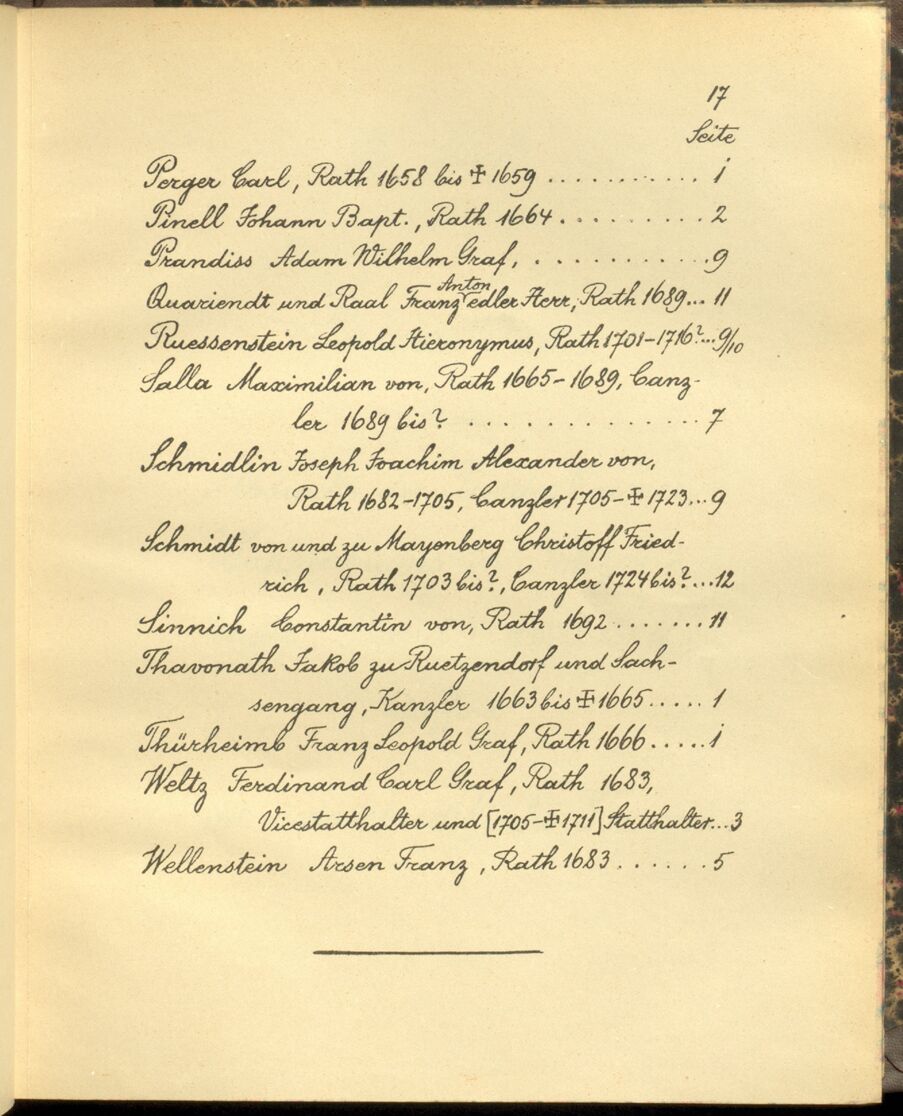 17
Seite
Perger Carl, Rath 1658 bis ✠ 1659 ........... 1
Pinell Johann Bapt., Rath 1664 .......... 2
Prandiss Adam Wilhelm Graf, ........... 9
Quariendt und Raal Franz Anton edler Herr, Rath 1689... 11
Ruessenstein Leopold Hieronymus, Rath 1701-1716?... 9/10
Salla Maximilian von, Rath 1665-1689, Canz-
ler 1689 bis? .............. 7
Schmidlin Joseph Joachim Alexander von,
Rath 1682-1705, Canzler 1705-✠ 1723... 9
Schmidt von und zu Mayenberg Christoff Fried-
rich, Rath 1703 bis?, Canzler 1724 bis?... 12
Sinnich Constantin von, Rath 1692 ....... 11
Thavonath Jakob zu Ruetzendorf und Sach-
sengang, Kanzler 1663 bis ✠ 1665 ..... 1
Thürheimb Franz Leopold Graf, Rath 1666 ..... 1
Weltz Ferdinand Carl Graf, Rath 1683,
Vicestatthalter und [1705-✠1711] Statthalter... 3
Wellenstein Arsen Franz, Rath 1683 ...... 5